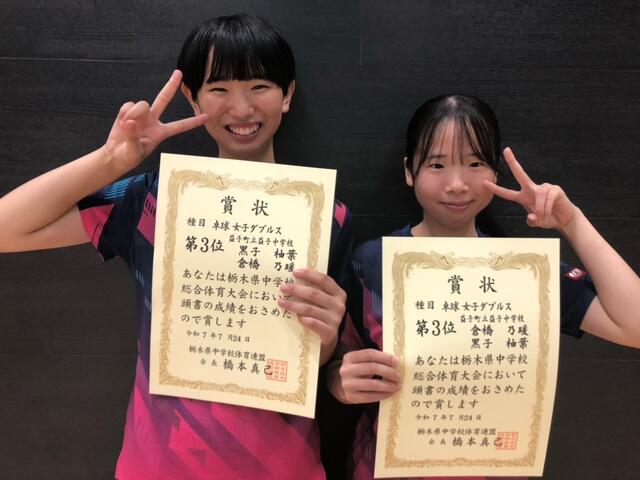 賞状
種目 卓球 女子ダブルス
益子町立益子中学校
第3位 黒子 柚葉
倉橋 乃暖
あなたは栃木県中学校
総合体育大会において
頭書の成績をおさめた
ので賞します
令和7年7月24日
栃木県中学校体育連盟
会長 橋本真
賞状
種目 卓球 女子ダブルス
益子町立益子中学校
第3位 倉橋 乃暖
黒子 柚葉
あなたは栃木県中学校
総合体育大会において
頭書の成績をおさめた
ので賞します
令和7年7月24日
栃木県中学校体育連盟
会長 橋本真